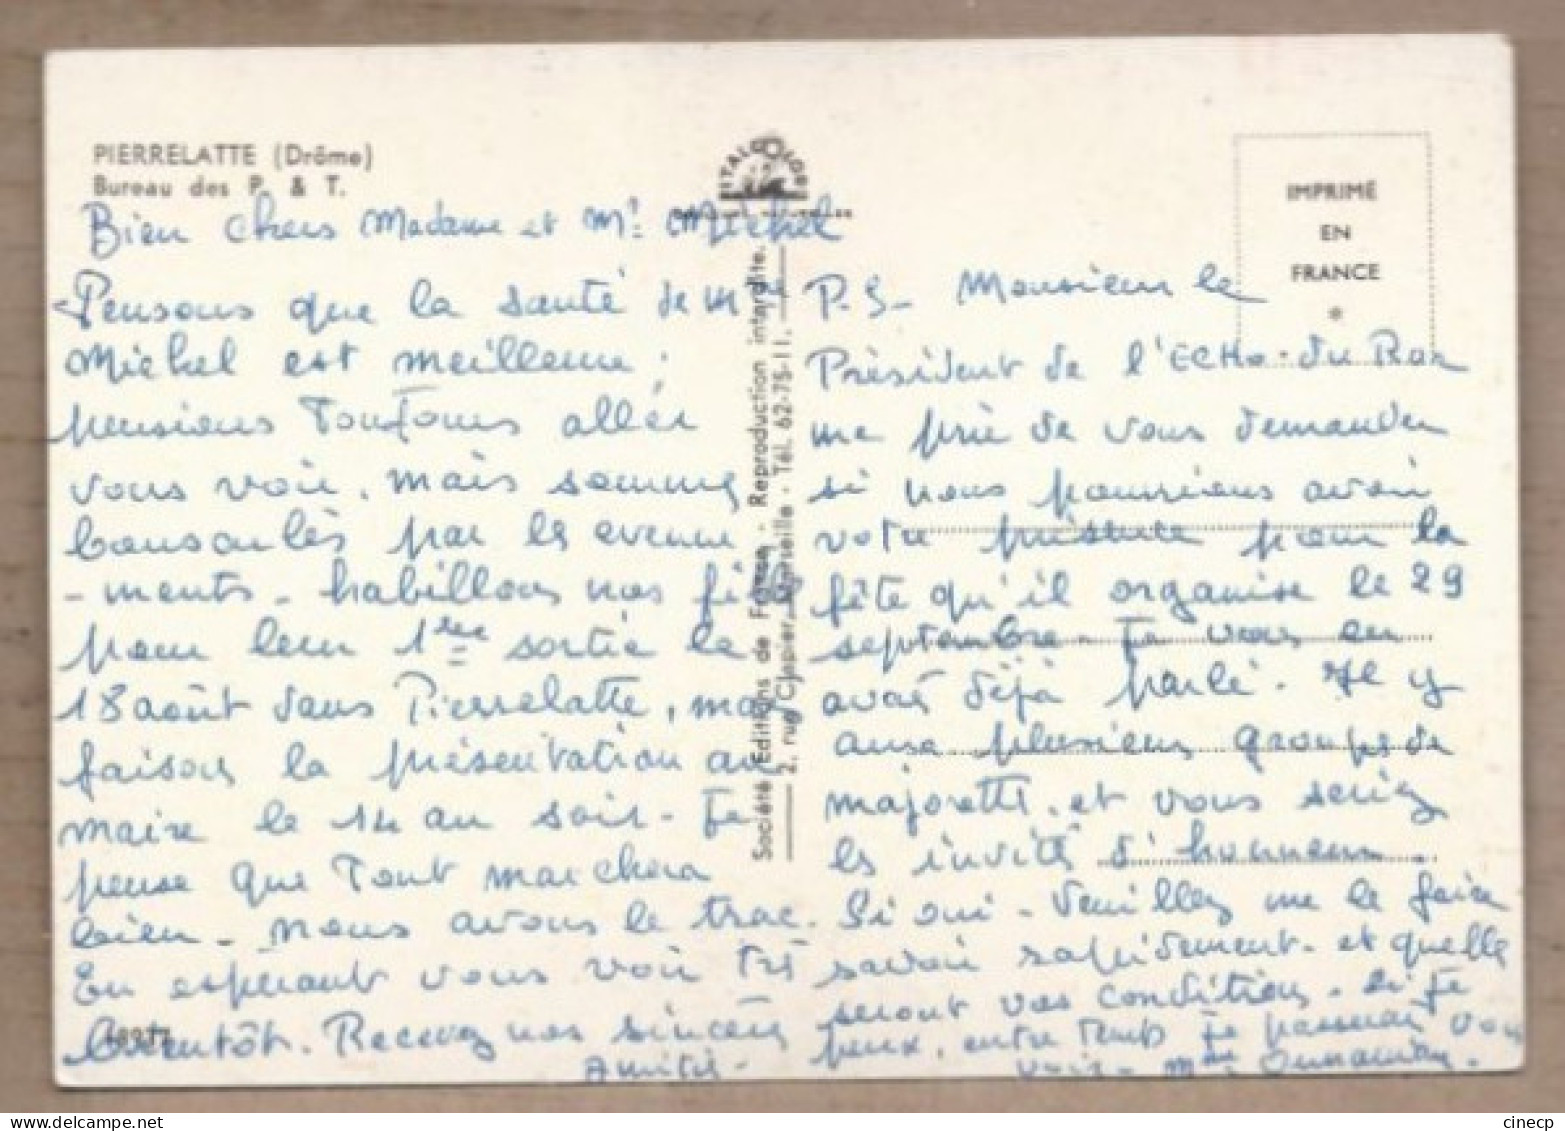 PIERRELATTE (Drôme)
Bureau des P. & T.
Bien chers Madame et Mr Michel
Pensons que la santé de Mme
Michel est meilleure,
pensions toujours aller
vous voir, mais sommes
bousculés par les evenne
-ments - habillons nos filles
pour leur 1ère sortie le
18 août dans Pierrelatte, mais
faisons la présentation au
maire le 14 au soir - Je
pense que tout marchera
bien - nous avons le trac.
En espérant vous voir très
bientôt. Recevez nos sincères
Amitiés -
ITALCOLOR
Société Editions de France - Reproduction interdite.
2, rue Crispier, Marseille - Tél. 62-75-11.
IMPRIMÉ
EN
FRANCE
*
P.S - Monsieur le
Président de l'Echo-du Roc
me prie de vous demander
si nous pourrions avoir
votre présence pour la
fête qu'il organise le 29
septembre - Je vous en
avais déjà parlé. Il y
aura plusieurs groupes de
majorette, et vous seriez
les invités d'honneur.
Si oui - Veuillez me le faire
savoir rapidement - et quelle
seront vos conditions - Si je
peux, entre temps je passerai vous
voir - Mme
cinecp